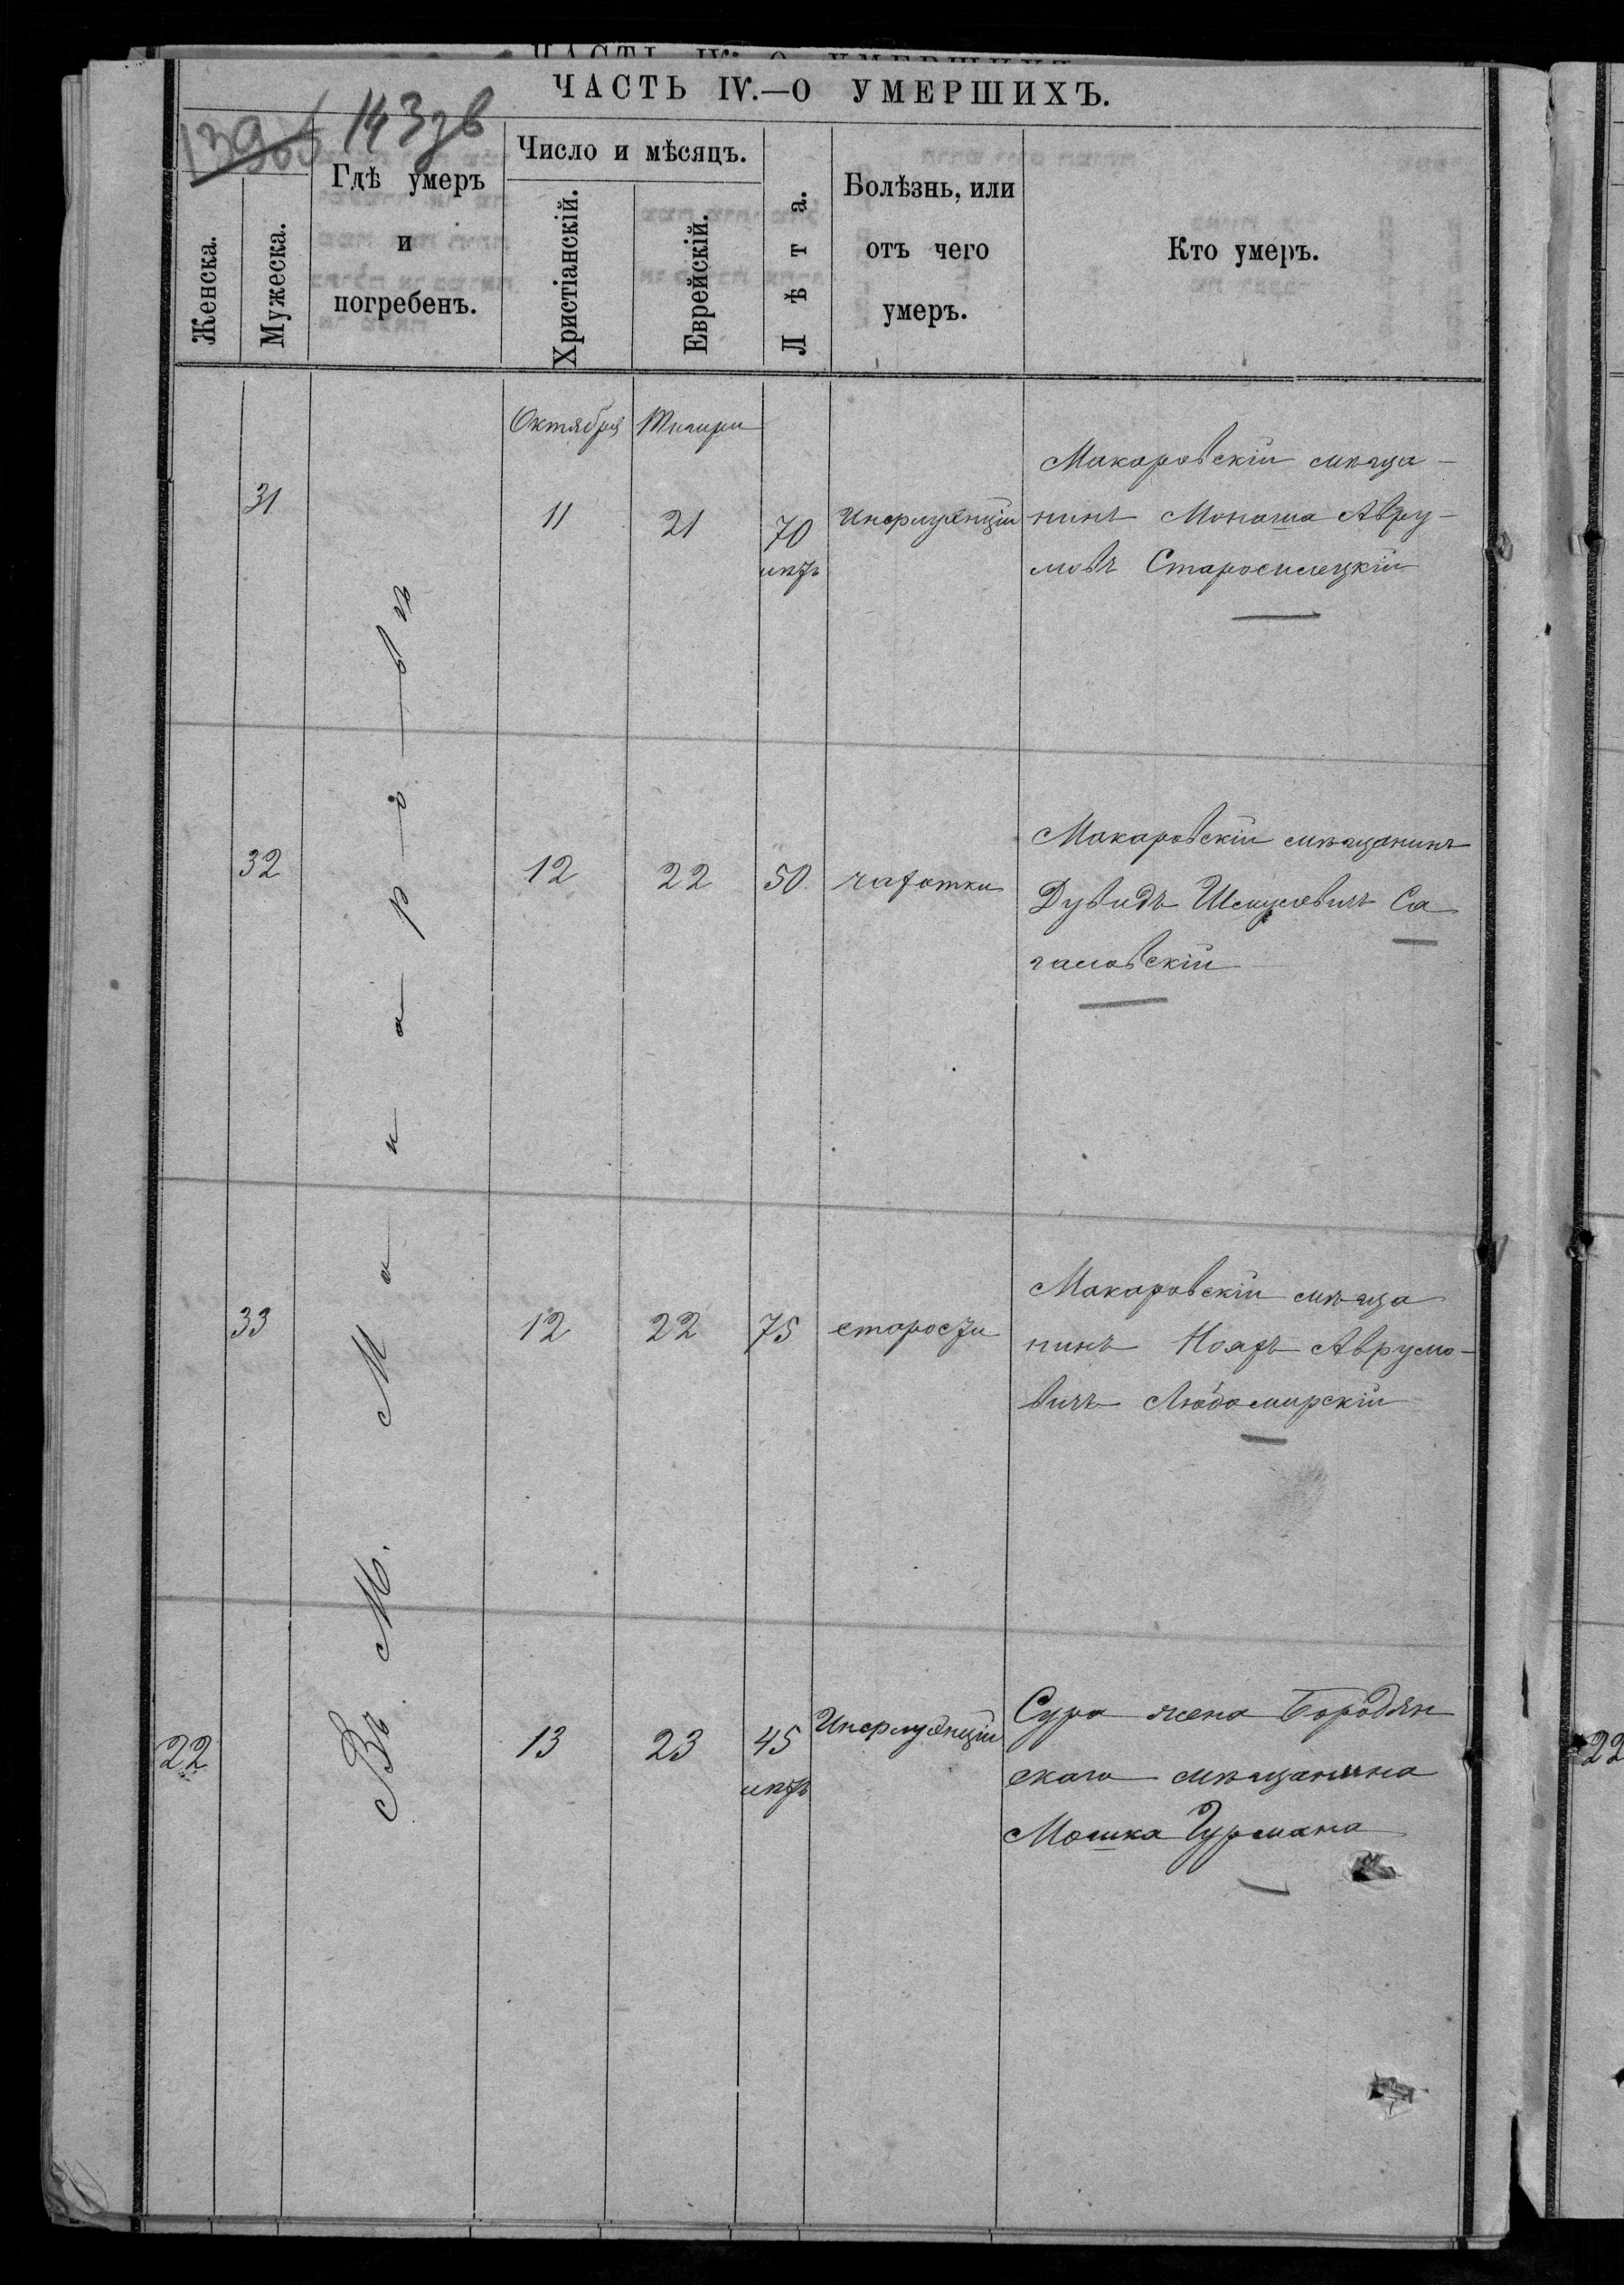 ЧАСТЬ IV.—О УМЕРШИХЪ.
143зв
Женска.
Мужеска.
Гдѣ умеръ
и
погребенъ.
Число и мѣсяцъ.
Христіанскій.
Еврейскій.
Лѣта.
Болѣзнь, или
отъ чего
умеръ.
Кто умеръ.
Въ М. Макаровѣ
Октября Тишри
31 11 21 70 лѣтъ Инфлуэнціи
Макаровскій мѣща-
нинъ Монаша Авру-
мовъ Старосилецкій
32 12 22 50 чахотки
Макаровскій мѣщанинъ
Дувидъ Шмулевичъ Са
галовскій
33 12 22 75 старости
Макаровскій мѣща
нинъ Нояхъ Аврумо-
вичъ Любомирскій
22 13 23 45 лѣтъ Инфлуэнціи
Сура жена Бородян
скаго мѣщанина
Мошка Гурмана
22